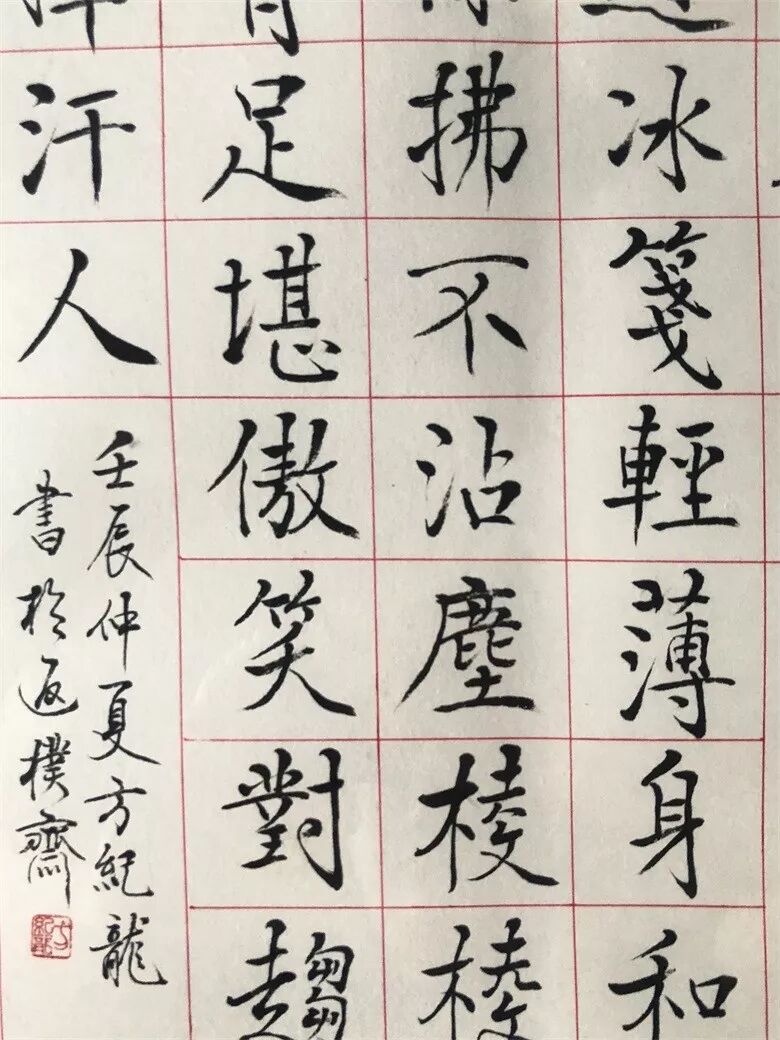 冰箋輕薄身和
拂不沾塵棱棱
足堪傲笑對趨
汗人
壬辰仲夏方紀龍
書於返樸齋